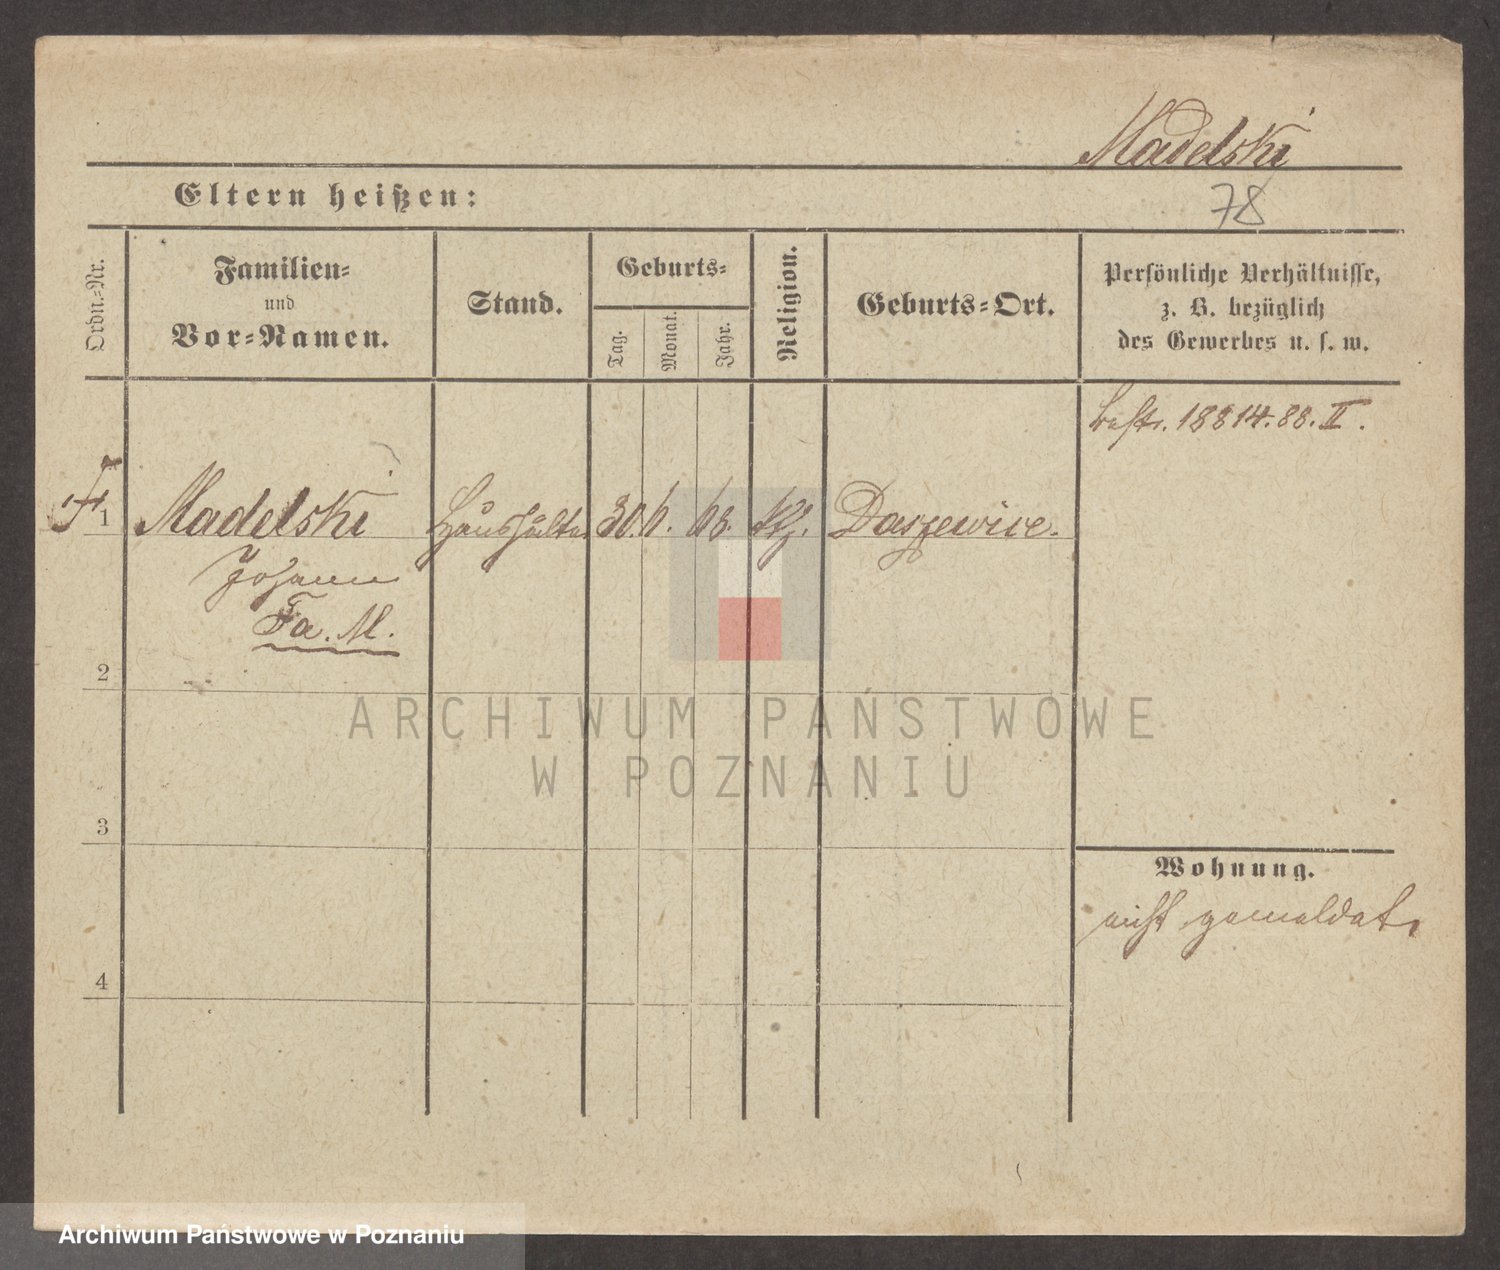 Madelski
78
Eltern heißen:
Ordn.-Nr.
Familien-
und
Vor-Namen.
Stand.
Geburts-
Tag.
Monat.
Jahr.
Religion.
Geburts-Ort.
Persönliche Verhältnisse,
z. B. bezüglich
des Gewerbes u. s. w.
bestr. 18814.88.II.
1
Madelski Haushälter 30. 6. 68. Kt. Daszewice.
Johann
Fa. M.
2
3
4
Wohnung.
nicht gemeldet.
ARCHIWUM PAŃSTWOWE
W POZNANIU
Archiwum Państwowe w Poznaniu